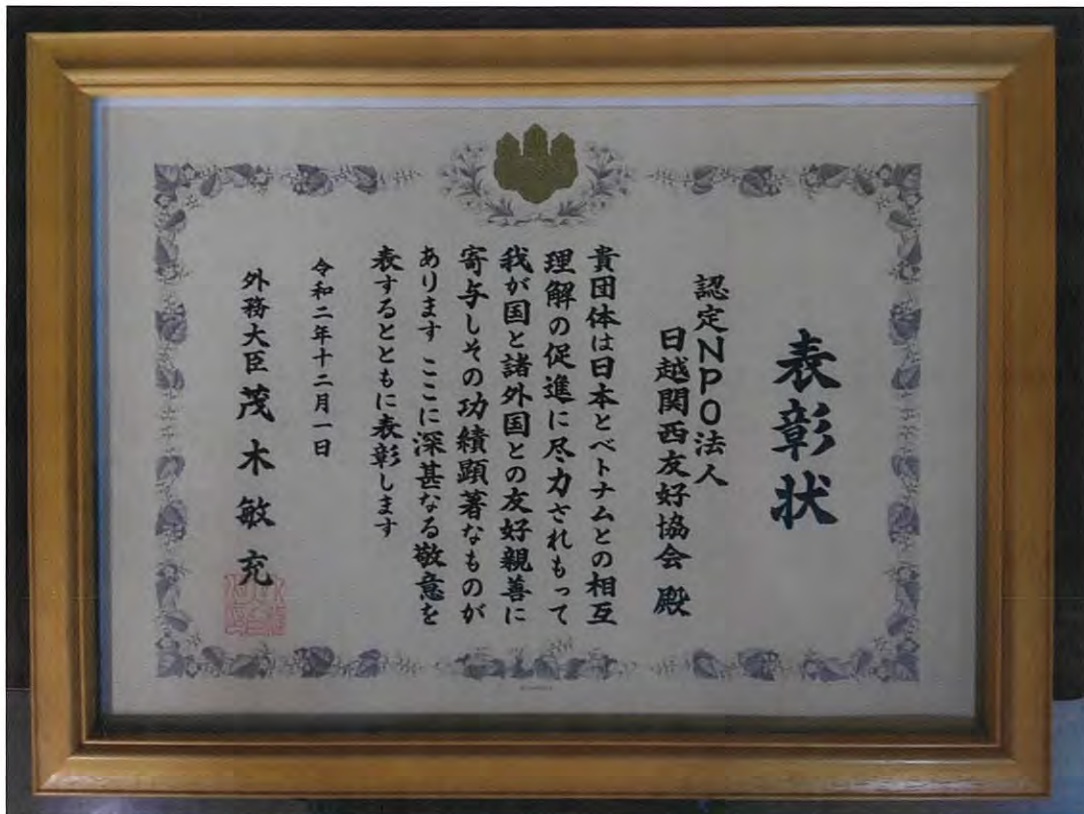 表彰状
認定NPO法人
日越関西友好協会 殿
貴団体は日本とベトナムとの相互
理解の促進に尽力されもって
我が国と諸外国との友好親善に
寄与しその功績顕著なものが
あります ここに深甚なる敬意を
表するとともに表彰します
令和二年十二月一日
外務大臣 茂木敏充